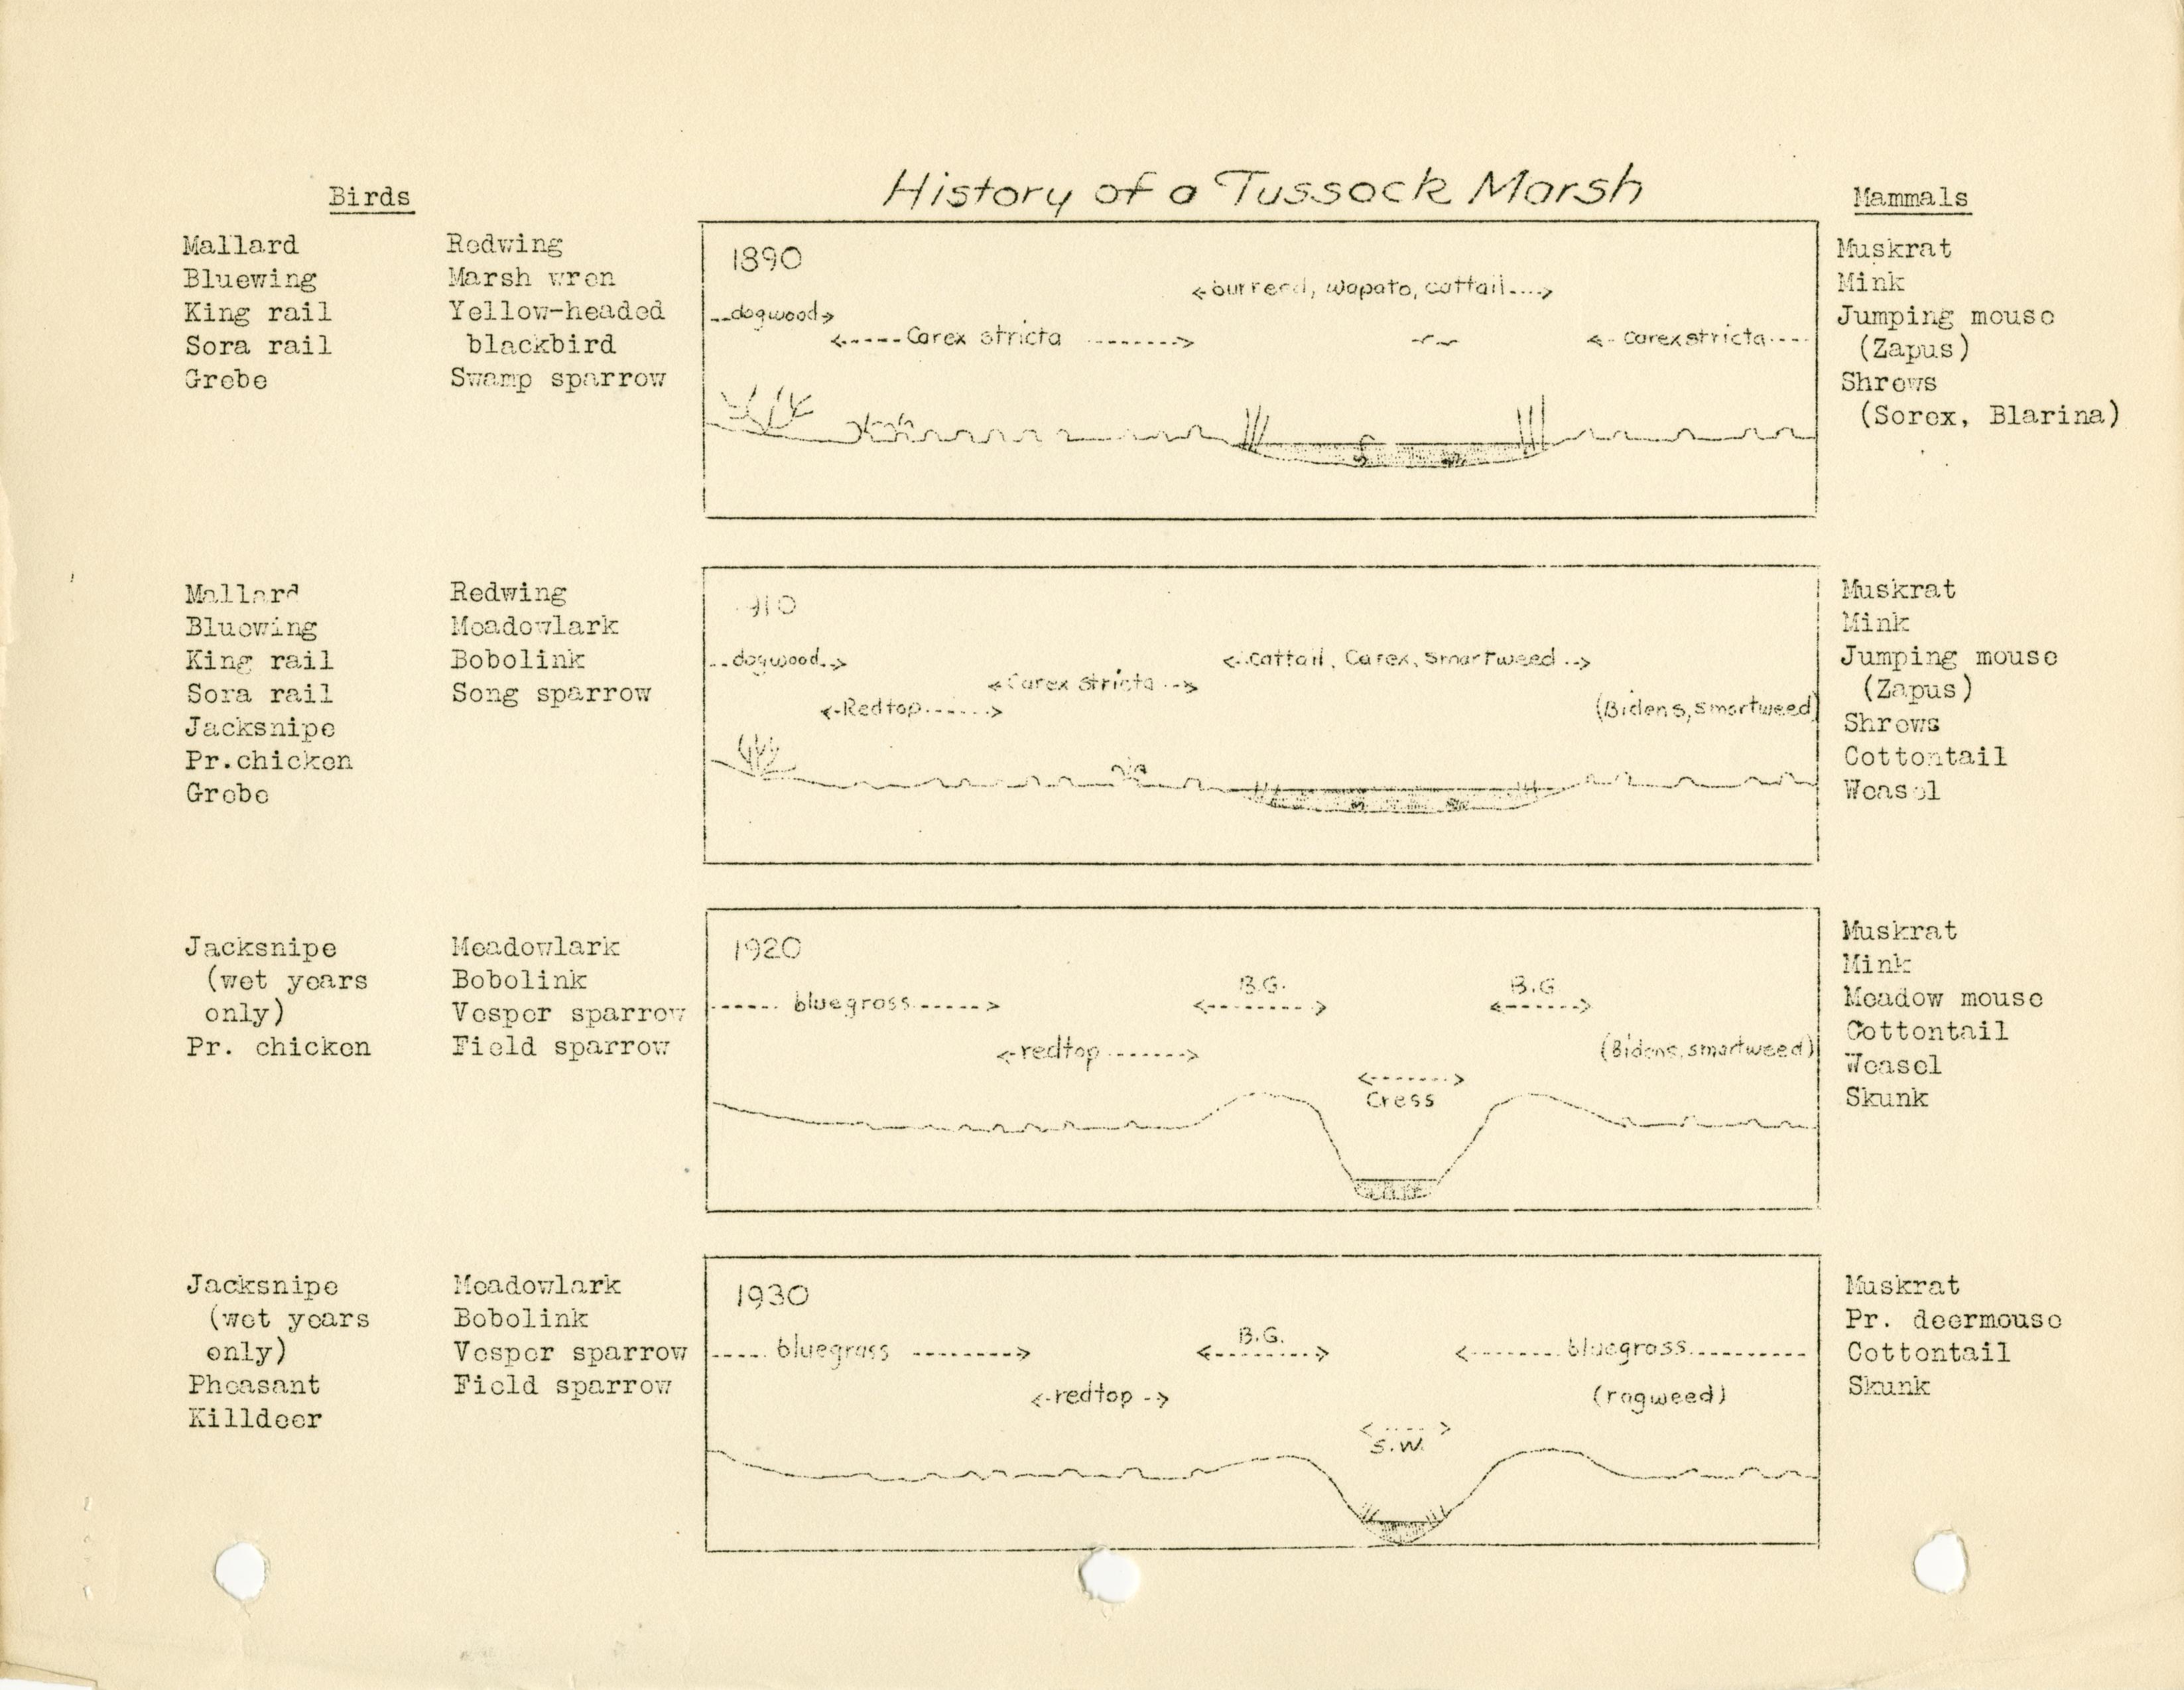 History of a Tussock Marsh
Birds
Mammals
Mallard
Bluewing
King rail
Sora rail
Grebe
Redwing
Marsh wren
Yellow-headed
blackbird
Swamp sparrow
1890
burreed, wapato, cattail
dogwood
Carex stricta
Carex stricta
Muskrat
Mink
Jumping mouse
(Zapus)
Shrews
(Sorex, Blarina)
Mallard
Bluewing
King rail
Sora rail
Jacksnipe
Pr.chicken
Grebe
Redwing
Meadowlark
Bobolink
Song sparrow
910
dogwood
Cattail, Carex, smartweed
Carex stricta
Redtop
(Bidens, smartweed)
Muskrat
Mink
Jumping mouse
(Zapus)
Shrews
Cottontail
Weasel
Jacksnipe
(wet years
only)
Pr. chicken
Meadowlark
Bobolink
Vesper sparrow
Field sparrow
1920
B.G.
B.G
bluegrass
redtop
(Bidens, smartweed)
Cress
Muskrat
Mink
Meadow mouse
Cottontail
Weasel
Skunk
Jacksnipe
(wet years
only)
Pheasant
Killdeer
Meadowlark
Bobolink
Vesper sparrow
Field sparrow
1930
B.G.
bluegrass
bluegrass
redtop
(ragweed)
S.W.
Muskrat
Pr. deermouse
Cottontail
Skunk